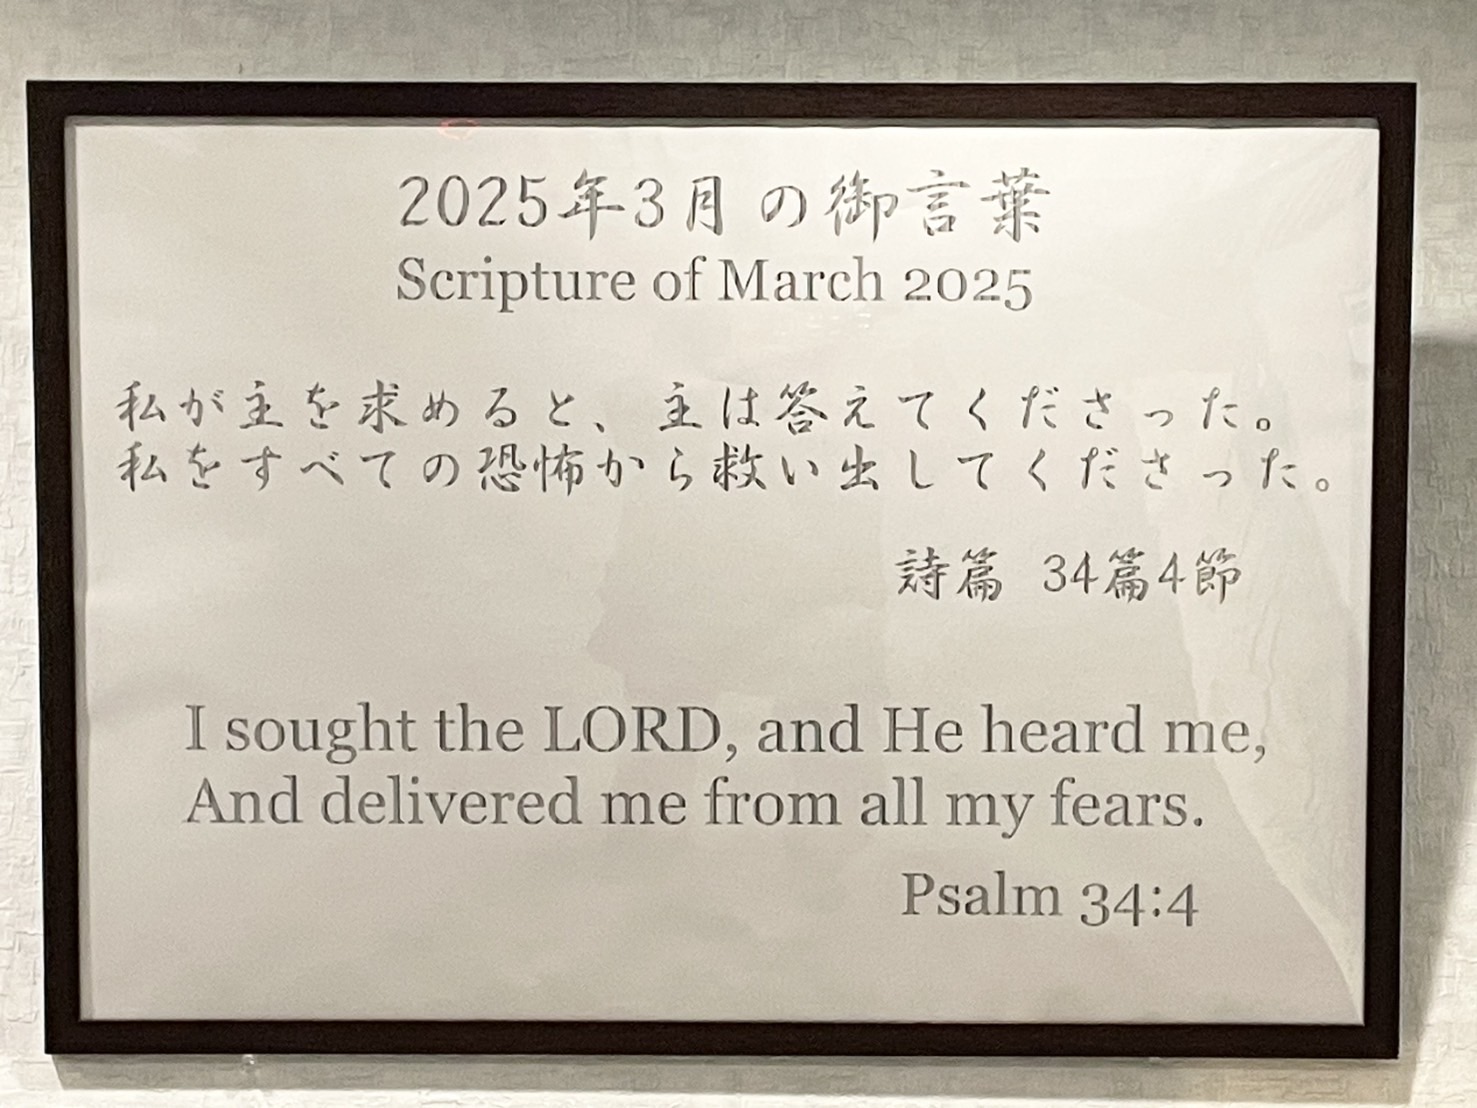 2025年3月の御言葉
Scripture of March 2025
私が主を求めると、主は答えてくださった。
私をすべての恐怖から救い出してくださった。
詩篇 34篇4節
I sought the LORD, and He heard me,
And delivered me from all my fears.
Psalm 34:4